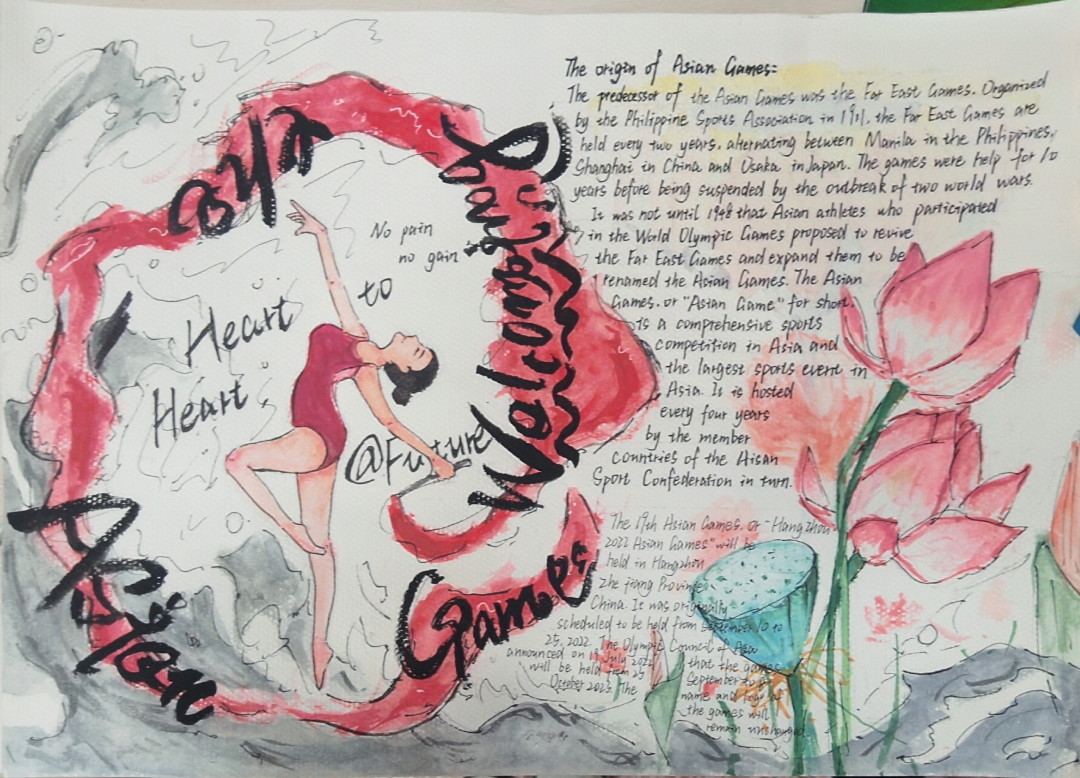 No pain
no gain
Heart to
Heart
@Future
Welcome
Asian
Games
The origin of Asian Games:
The predecessor of the Asian Games was the Far East Games. Organized
by the Philippine Sports Association in 1911, the Far East Games are
held every two years, alternating between Manila in the Philippines,
Shanghai in China and Osaka in Japan. The games were help for 10
years before being suspended by the outbreak of two world wars.
It was not until 1948 that Asian athletes who participated
in the World Olympic Games proposed to revive
the Far East Games and expand them to be
renamed the Asian Games. The Asian
Games. or "Asian Game" for short.
is a comprehensive sports
competition in Asia and
the largest sports event in
Asia. It is hosted
every four years
by the member
countries of the Aisan
Sport Confederation in turn.
The 19th Asian Games. or "Hangzhou
2022 Asian Games" will be
held in Hangzhou
Zhe jiang Province
China. It was originally
scheduled to be held from September 10 to
25, 2022. The Olympic Council of Asia
announced on 19 July 2022 that the games
will be held from 23 September to 8
October 2023. The name and logo of
the games will
remain unchanged.